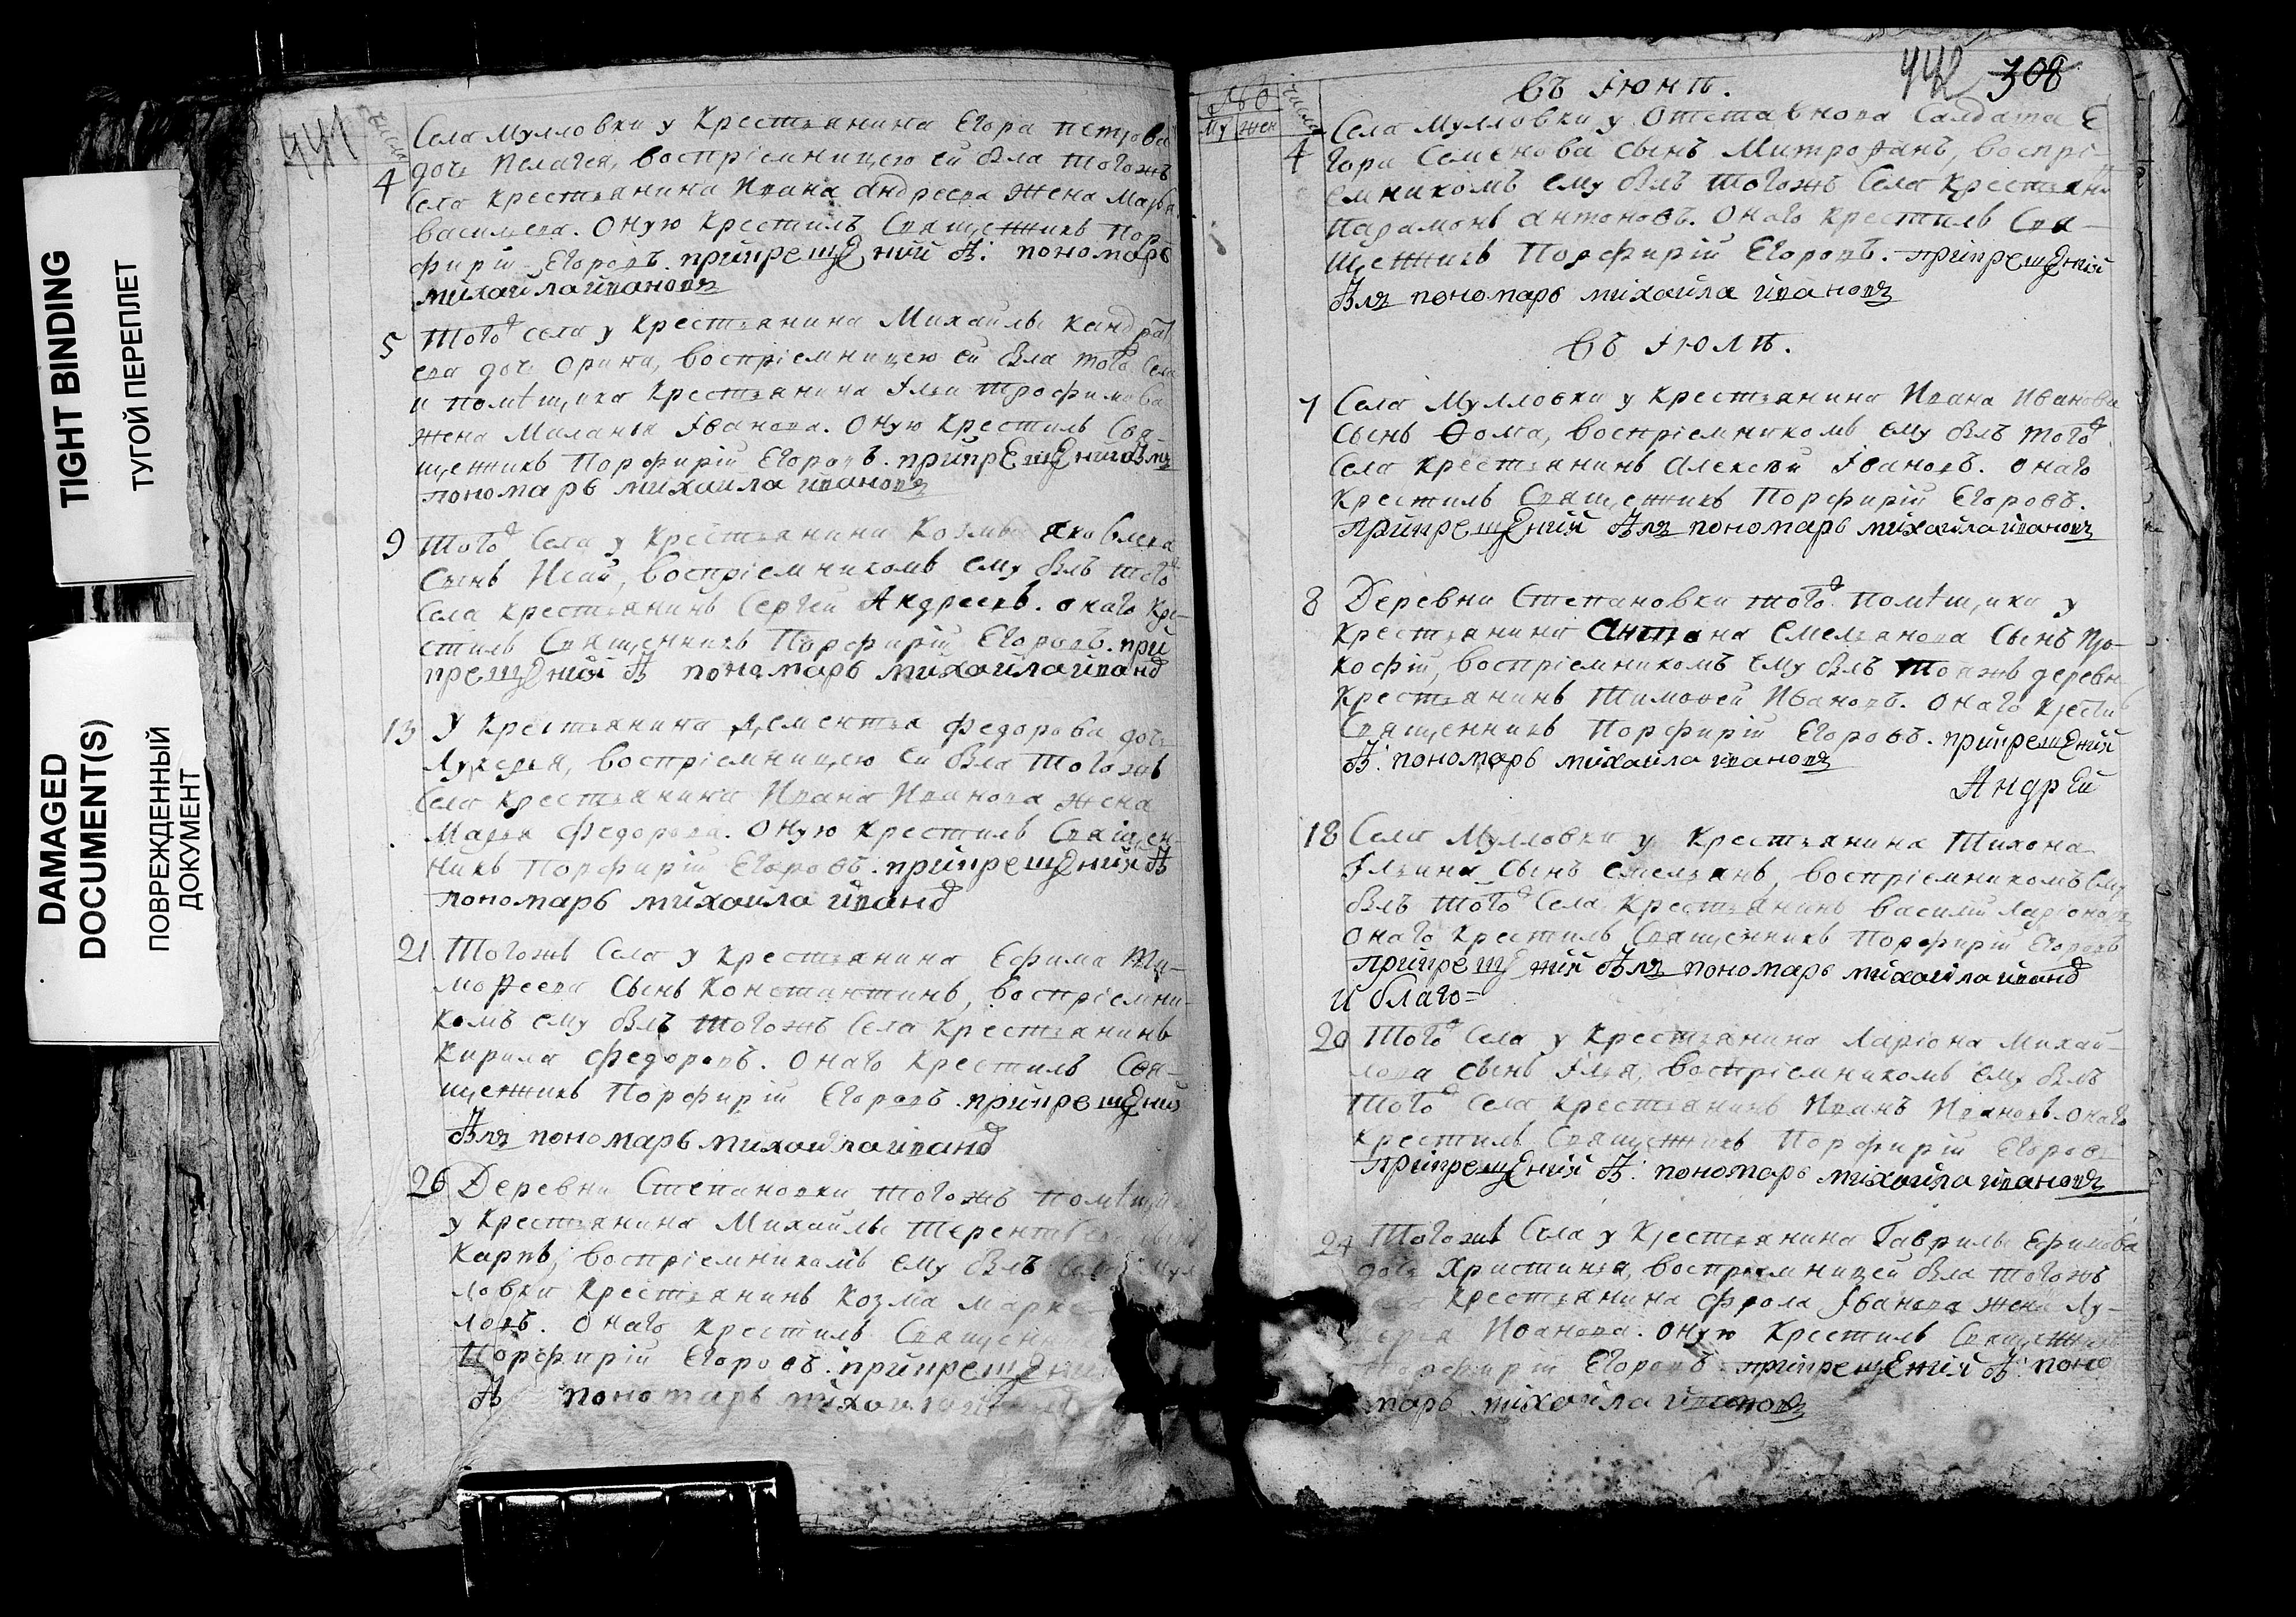 TIGHT BINDING
ТУГОЙ ПЕРЕПЛЕТ
DAMAGED
DOCUMENT(S)
ПОВРЕЖДЕННЫЙ
ДОКУМЕНТ
441
числа
Села Мулловки у крестьянина Егора петрова
4 дочь Пелагея, воспрiемницею ей была тогожъ
села крестьянина Ивана андреева жена Марфа
васильева. Оную крестилъ Священникъ Пор
фирiй Егоровъ. прикрещенiи б: пономарь
михайла иванов
5 того села у крестьянина Михайлы кандрат
ева дочь орина, воспрiемницею ей была того села
и помѣщика крестьянина Iльи трофимова
жена Маланья Iванова. Оную крестилъ Свя-
щенникъ Порфирiй Егоровъ. прикрещении былъ
пономарь михайла иванов
9 того села у крестьянина Козмы яковлева
сынъ Исай, воспрiемникомъ ему былъ того
села крестьянинъ Сергей Андреевъ. онаго кре-
стилъ Священникъ Порфирiй Егоровъ. при
крещении б пономарь михайла иванов
13 у крестьянина дементья федорова дочь
Лукерья, воспрiемницею ей была тогожъ
села крестьянина Ивана Иванова жена
Марья федорова. Оную крестилъ Священ-
никъ Порфирiй Егоровъ. прикрещении б
пономарь михайла иванов
21 Тогожъ села у крестьянина Ефима Ти-
мофеева сынъ Константинъ, воспрiемни-
комъ ему былъ тогожъ села крестьянинъ
Кирила федоровъ. онаго крестилъ Свя-
щенникъ Порфирiй Егоровъ. прикрещении
былъ пономарь михайла иванов
26 Деревни Степановки тогожъ помѣщика
у крестьянина Михайлы терентьева
карпъ, воспрiемникомъ ему былъ села Мул
ловки крестьянинъ козма марке-
ловъ. онаго крестилъ Священ
Порфирiй Егоровъ. прикрещении
б пономарь михайла
442 308
въ Iюнѣ.
му жен
числа
Села Мулловки у отставнова Салдата Е
4 гора Семенова сынъ Митрофанъ, воспрi-
емникомъ ему былъ тогожъ села крестьяни
парамонъ антоновъ. Онаго крестилъ Свя-
щенникъ Порфирiй Егоровъ. прикрещенiи
былъ пономарь михайла иванов
въ Iюлѣ.
7 Села Мулловки у крестьянина Ивана Иванова
сынъ Ѳома, воспрiемникомъ ему былъ того
села крестьянинъ Алексѣй Iвановъ. онаго
крестилъ Священникъ Порфирiй Егоровъ.
прикрещении былъ пономарь михайла иванов
8 Деревни Степановки того помѣщика у
крестьянина Антона Емельянова сынъ Про-
кофiй, воспрiемникомъ ему былъ тояжъ деревни
крестьянинъ Тимоѳей Ивановъ. Онаго крести
Священникъ Порфирiй Егоровъ. прикрещении
б: пономарь михайла иванов
Андрей
18 Села Мулловки у крестьянина Тихона
Iльина сынъ емельянъ, воспрiемникомъ ему
былъ того села крестьянинъ василiй ларiонов
онаго крестилъ Священникъ Порфирiй Егоровъ
прикрещении былъ пономарь михайла иванов
И благо=
20 Того села у крестьянина ларiона Михай-
лова сынъ Iлья, воспрiемникомъ ему былъ
того села крестьянинъ Иванъ Ивановъ. онаго
крестилъ Священникъ Порфирiй Егоров
прикрещении б: пономарь михайла иванов
24 Тогожъ села у крестьянина Гаврилы Ефимова
дочь Христинья, воспрiемницей была тогожъ
села крестьянина фрола Iванова жена Лу-
керья Иванова. оную крестилъ Священник
Порфирiй Егоровъ прикрещении б: поно
марь михайла иванов